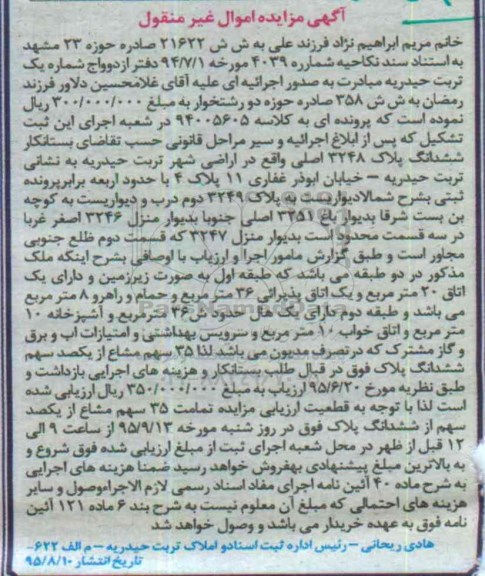 آگهی مزایده اموال غیر منقول
خانم مریم ابراهیم نژاد فرزند علی به ش ش ۲۱۶۲۲ صادره حوزه ۲۳ مشهد
به استناد سند نکاحیه شمارره ۴۰۳۹ مورخه ۹۴/۷/۱ دفتر ازدوواج شماره یک
تربت حیدریه مبادرت به صدور اجرائیه ای علیه آقای غلامحسین دلاور فرزند
رمضان به ش ش ۳۵۸ صادره حوزه دو رشتخوار به مبلغ ۳۰۰/۰۰۰/۰۰۰ ریال
نموده است که پرونده ای به کلاسه ۹۴۰۰۵۶۰۵ در شعبه اجرای این ثبت
تشکیل که پس از ابلاغ اجرائیه و سیر مراحل قانونی حسب تقاضای بستانکار
ششدانگ پلاک ۳۲۴۸ اصلی واقع در اراضی شهر تربت حیدریه به نشانی
تربت حیدریه – خیابان ابوذر غفاری ۱۱ پلاک ۴ با حدود اربعه برابرپرونده
ثبتی بشرح شمالادیواریست به پلاک ۳۲۴۹ دوم درب و دیواریست به کوچه
بن بست شرقا بدیوار باغ ۳۲۵۱ اصلی جنوبا بدیوار منزل ۳۲۴۶ اصغر غربا
در سه قسمت محدود است بدیوار منزل ۳۲۴۷ که قسمت دوم ظلع جنوبی
مجاور است و طبق گزارش مامور اجرا و ارزیاب با اوصافی بشرح اینکه ملک
مذکور در دو طبقه می باشد که طبقه اول به صورت زیرزمین و دارای یک
اتاق ۲۰ متر مربع و یک اتاق پذیرائی ۳۶ متر مربع و حمام و راهرو ۸ متر مربع
می باشد و طبقه دوم دارای یک هال حدود ش ۳۶ متر مربع و آشپزخانه ۱۰
متر مربع و اتاق خواب ۱۰ متر مربع و سرویس بهداشتی و امتیازات اب و برق
و گاز مشترک که در تصرف مدیون می باشد لذا ۳۵ سهم مشاع از یکصد سهم
ششدانگ پلاک فوق در قبال طلب بستانکار و هزینه های اجرایی بازداشت و
طبق نظریه مورخ ۹۵/۶/۲۰ ارزیاب به مبلغ ۳۵۰/۰۰۰/۰۰۰ ریال ارزیابی شده
است لذا با توجه به قطعیت ارزیابی مزایده تمامت ۳۵ سهم مشاع از یکصد
سهم از ششدانگ پلاک فوق در روز شنبه مورخه ۹۵/۹/۱۳ از ساعت ۹ الی
۱۲ قبل از ظهر در محل شعبه اجرای ثبت از مبلغ ارزیابی شده فوق شروع و
به بالاترین مبلغ پیشنهادی بهفروش خواهد رسید ضمنا هزینه های اجرایی
به شرح ماده ۴۰ آئین نامه اجرای مفاد اسناد رسمی لازم الاجراءوصول و سایر
هزینه های احتمالی که مبلغ آن معلوم نیست به شرح بند ۶ ماده ۱۲۱ آئین
نامه فوق به عهده خریدار می باشد و وصول خواهد شد
هادی ریحانی – رئیس اداره ثبت اسنادو املاک تربت حیدریه – م الف ۶۲۲-
تاریخ انتشار ۹۵/۸/۱۰